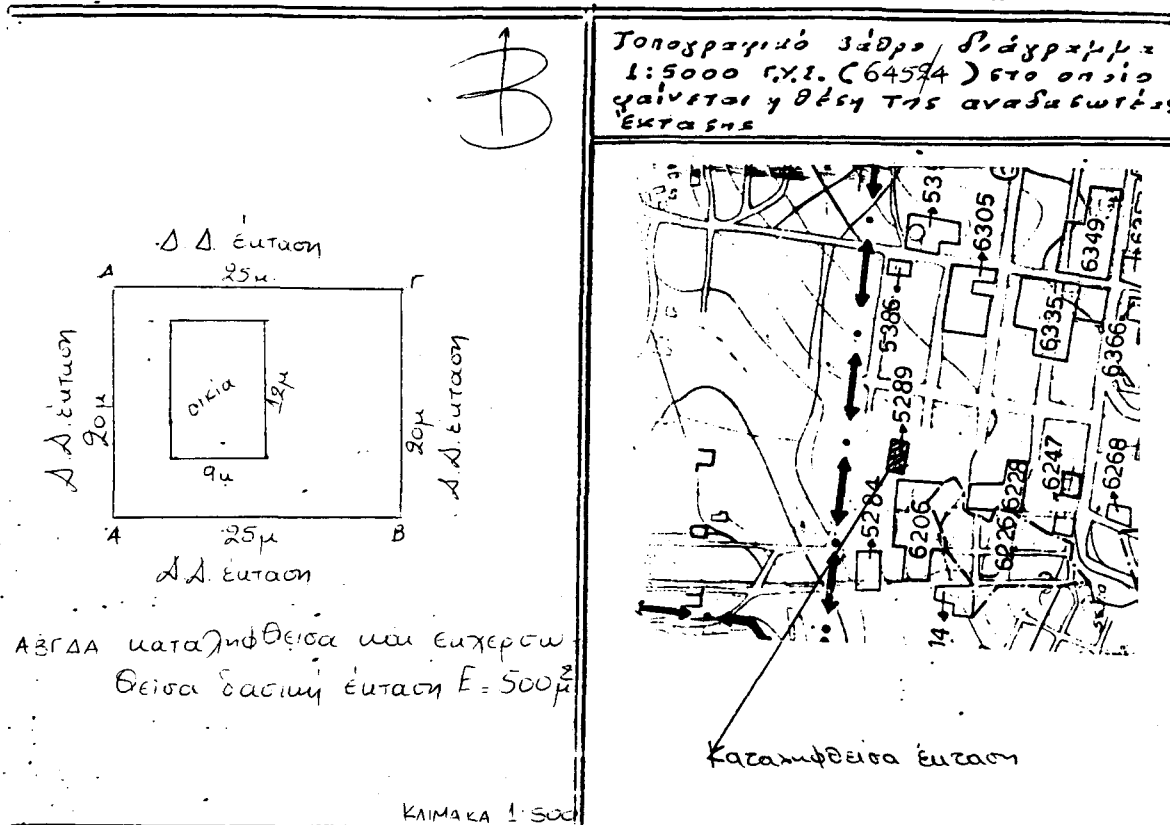 Β
Δ.Δ. έκταση
25μ.
Δ
Γ
Δ.Δ. έκταση
20μ
οικία
12μ
9μ
20μ
Δ.Δ. έκταση
Α
25μ
Β
Δ.Δ. έκταση
ΑΒΓΔΑ καταληφθείσα και εκχερσω-
θείσα δασική έκταση Ε = 500μ²
ΚΛΙΜΑΚΑ 1:500
Τοπογραφικό βάθρο/διάγραμμα
1:5000 Γ.Υ.Σ. (64594) στο οποίο
φαίνεται η θέση της αναδασωτέας
έκτασης
6305
6349
5386
6335
6366
5289
5284
6206
6228
6226
6247
6268
14
Καταληφθείσα έκταση